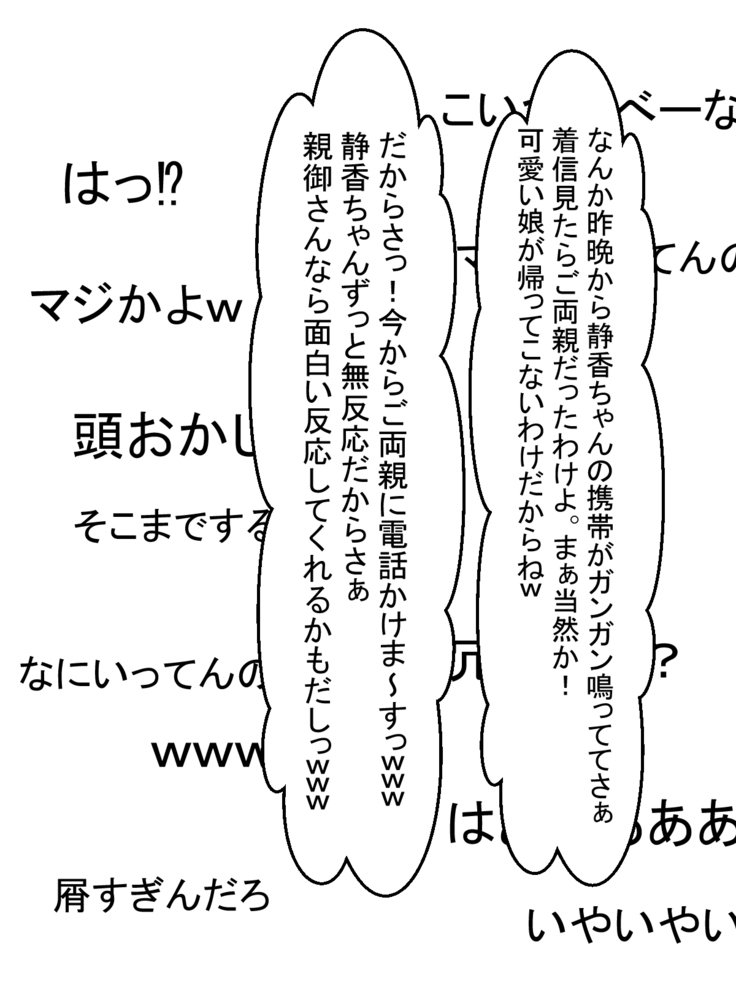 なんか昨晩から静香ちゃんの携帯がガンガン鳴っててさぁ
着信見たらご両親だったわけよ。まぁ当然か！
可愛い娘が帰ってこないわけだからねw
だからさっ！今からご両親に電話かけま～すっwww
静香ちゃんずっと無反応だからさぁ
親御さんなら面白い反応してくれるかもだしっwww
べーな
てんの
？
ああ
いやいやい
はっ!?
マジかよw
頭おかし
そこまでする
なにいってんの
www
屑すぎんだろ